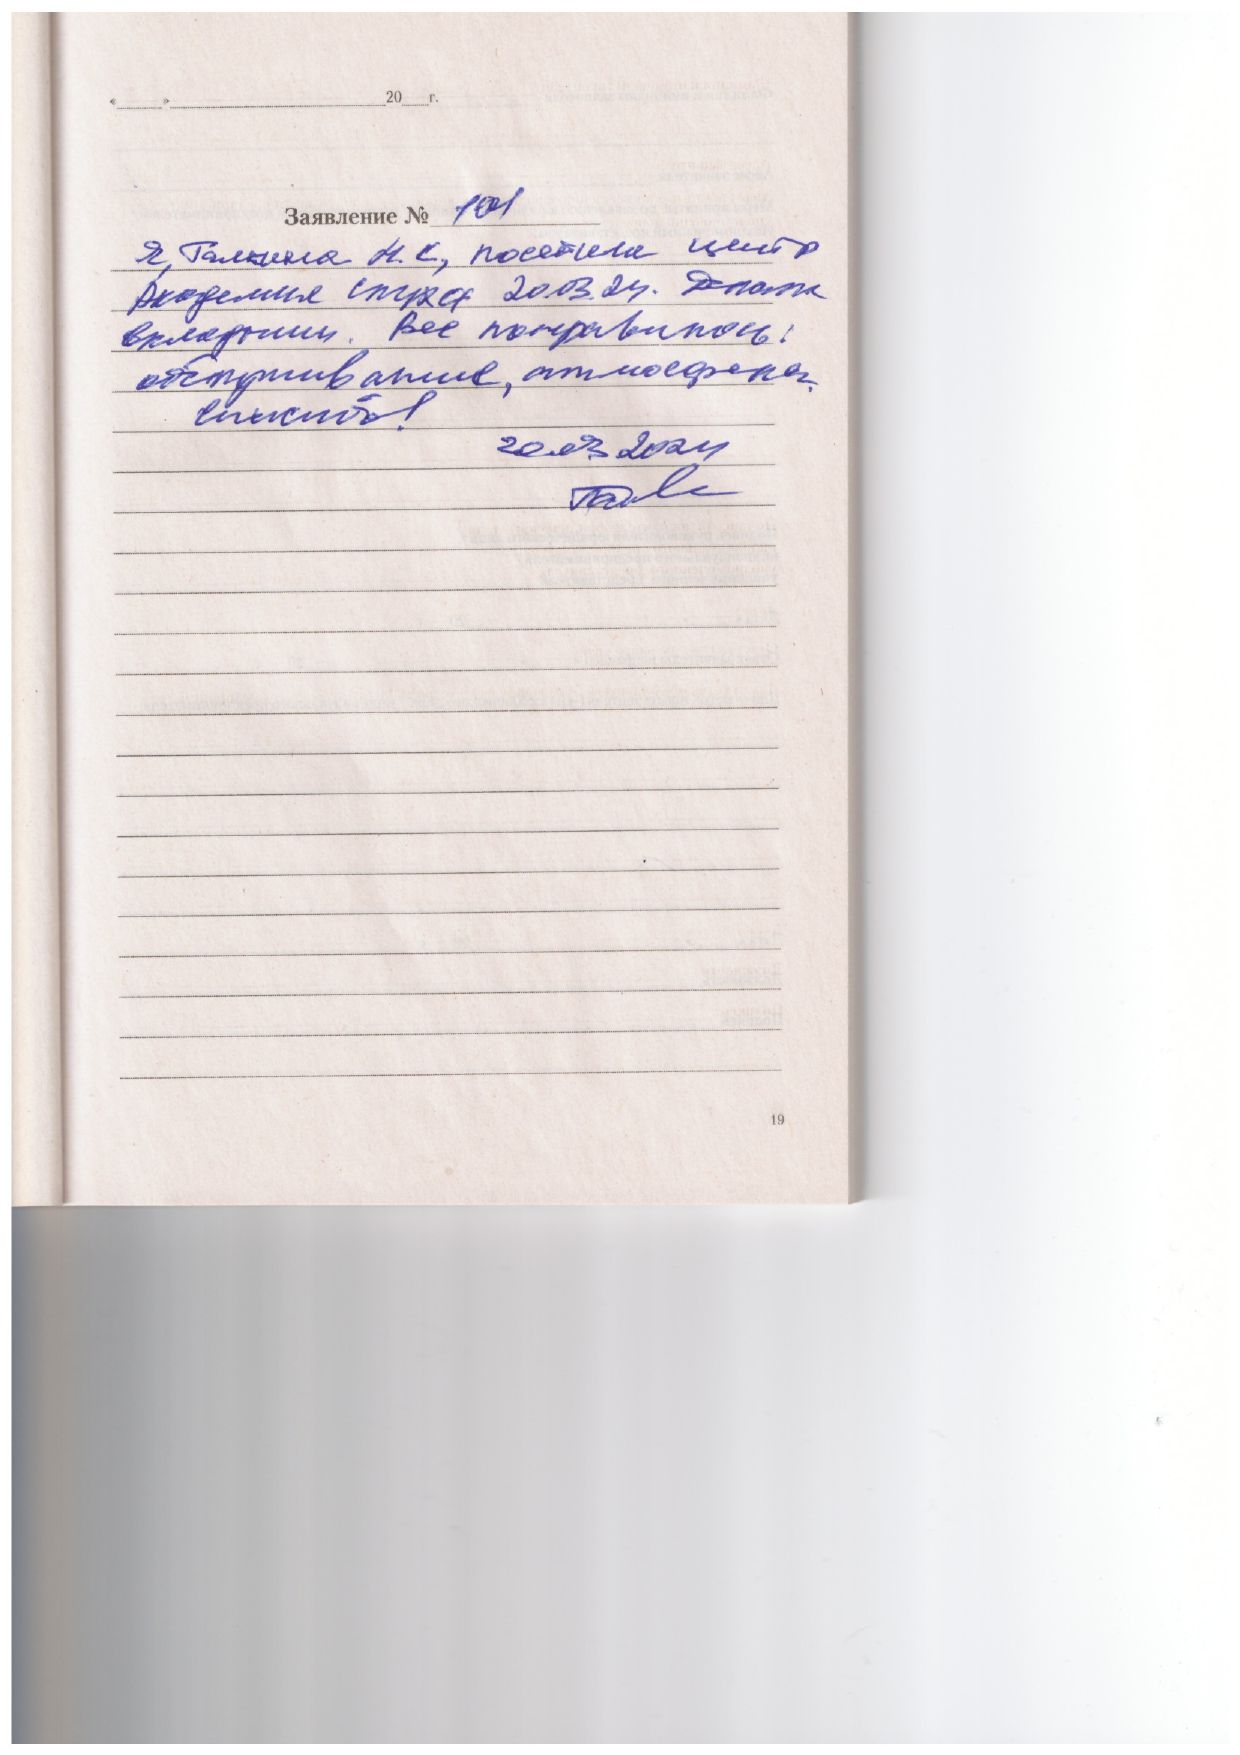 «____»____________________20___г.
Заявление № 101
Я, Галкина Н.К., посетила центр
Академия слуха 20.03.24.
вкладыши. Все понравилось:
обслуживание, атмосфера,
20.03.2024
19